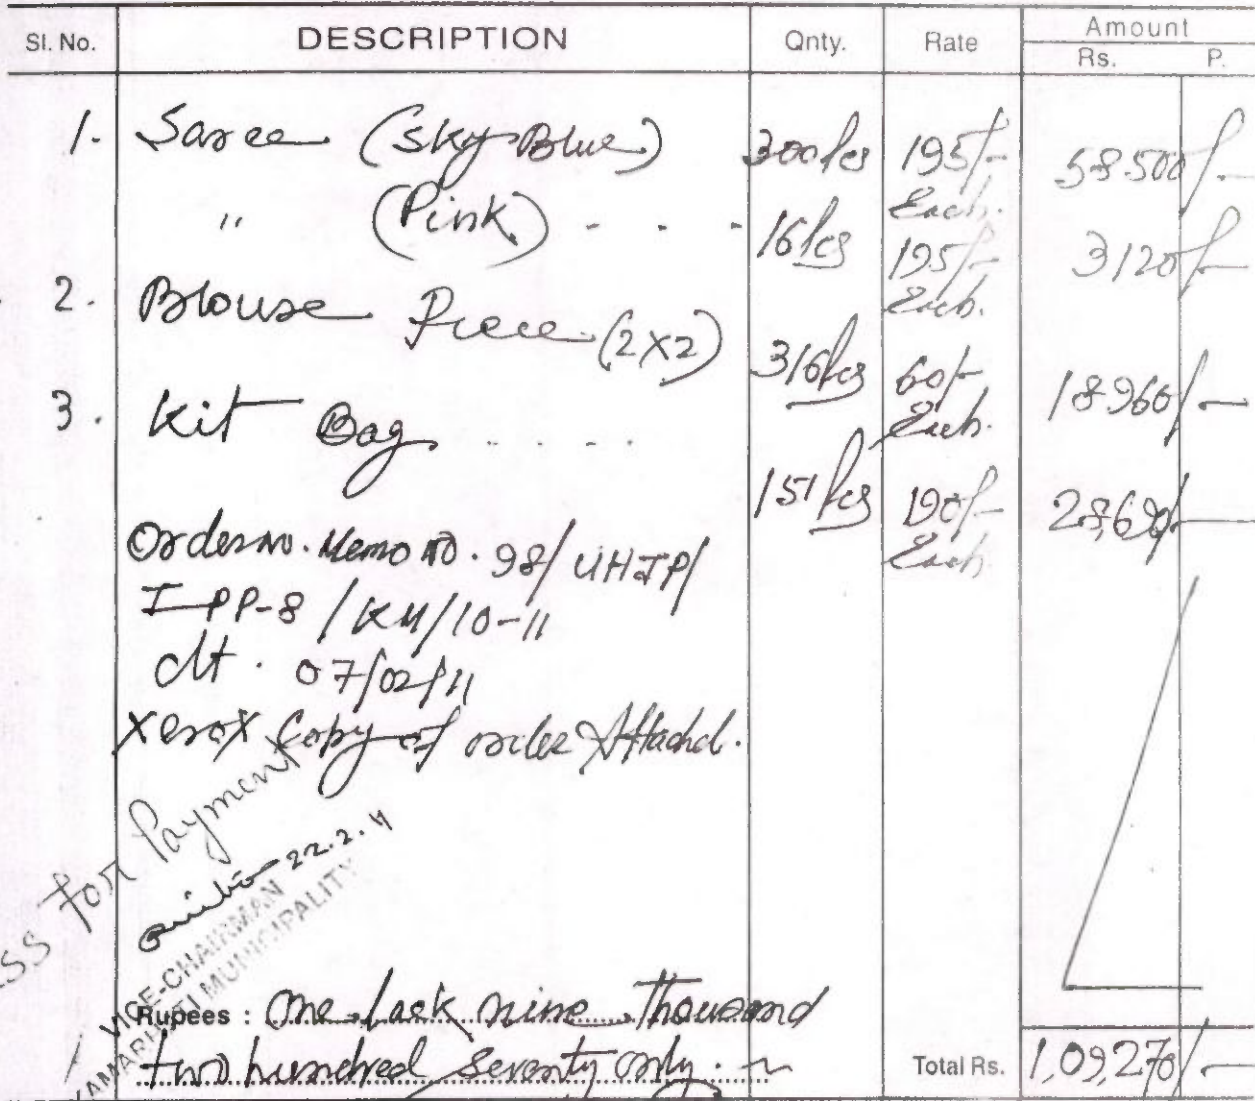 Sl. No. DESCRIPTION Qnty. Rate Amount
Rs. P.
1. Saree (Sky Blue) 300 Pcs 195/- Each. 58500/-
" (Pink) - - - 16 Pcs 195/- Each. 3120/-
2. Blouse Piece (2X2) 316 Pcs 60/- Each. 18960/-
3. Kit Bag . . . . 151 Pcs 190/- Each 28,690/-
Order no. Memo no. 98/UHIP/
IPP-8/KM/10-11
dt. 07/02/11
Xerox Copy of order Attachd.
for Payment
22.2.11
VICE-CHAIRMAN
KAMARHATI MUNICIPALITY
Rupees : One lack nine Thousand
two hundred Seventy only. Total Rs. 1,09,270/-